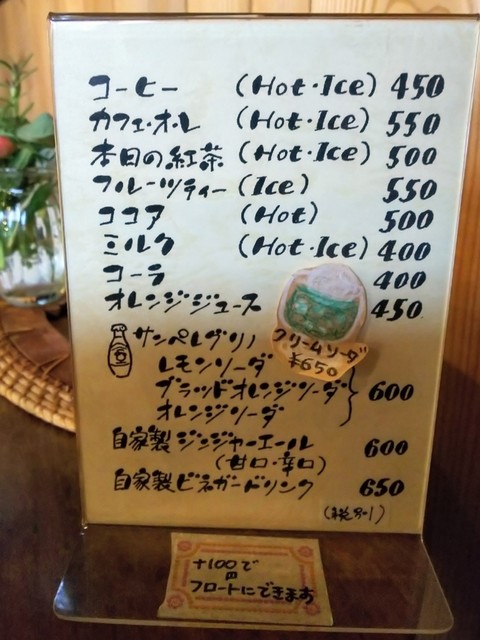 コーヒー (Hot・Ice) 450
カフェ・オ・レ (Hot・Ice) 550
本日の紅茶 (Hot・Ice) 500
フルーツティー (Ice) 550
ココア (Hot) 500
ミルク (Hot・Ice) 400
コーラ 400
オレンジジュース 450
クリームソーダ
¥650
サンペレグリノ
レモンソーダ
ブラッドオレンジソーダ 600
オレンジソーダ
自家製ジンジャーエール 600
(甘口・辛口)
自家製ビネガードリンク 650
(税別)
+100円で
フロートにできます